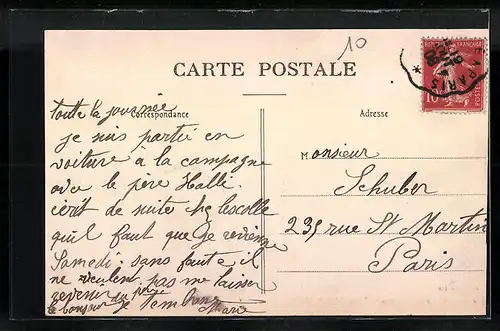 10
RÉPUBLIQUE FRANÇAISE
POSTES
10
A PARIS *
CARTE POSTALE
Correspondance
Adresse
toute la journée
je suis partie en
voiture à la campagne
avec le père Halli.
écrit de suite
qu'il faut que je revienne
Samedi. sans faute il
ne veulent pas me laisser
revenir
le bonjour je
Marie
Monsieur
Schuber
235 rue St Martin
Paris